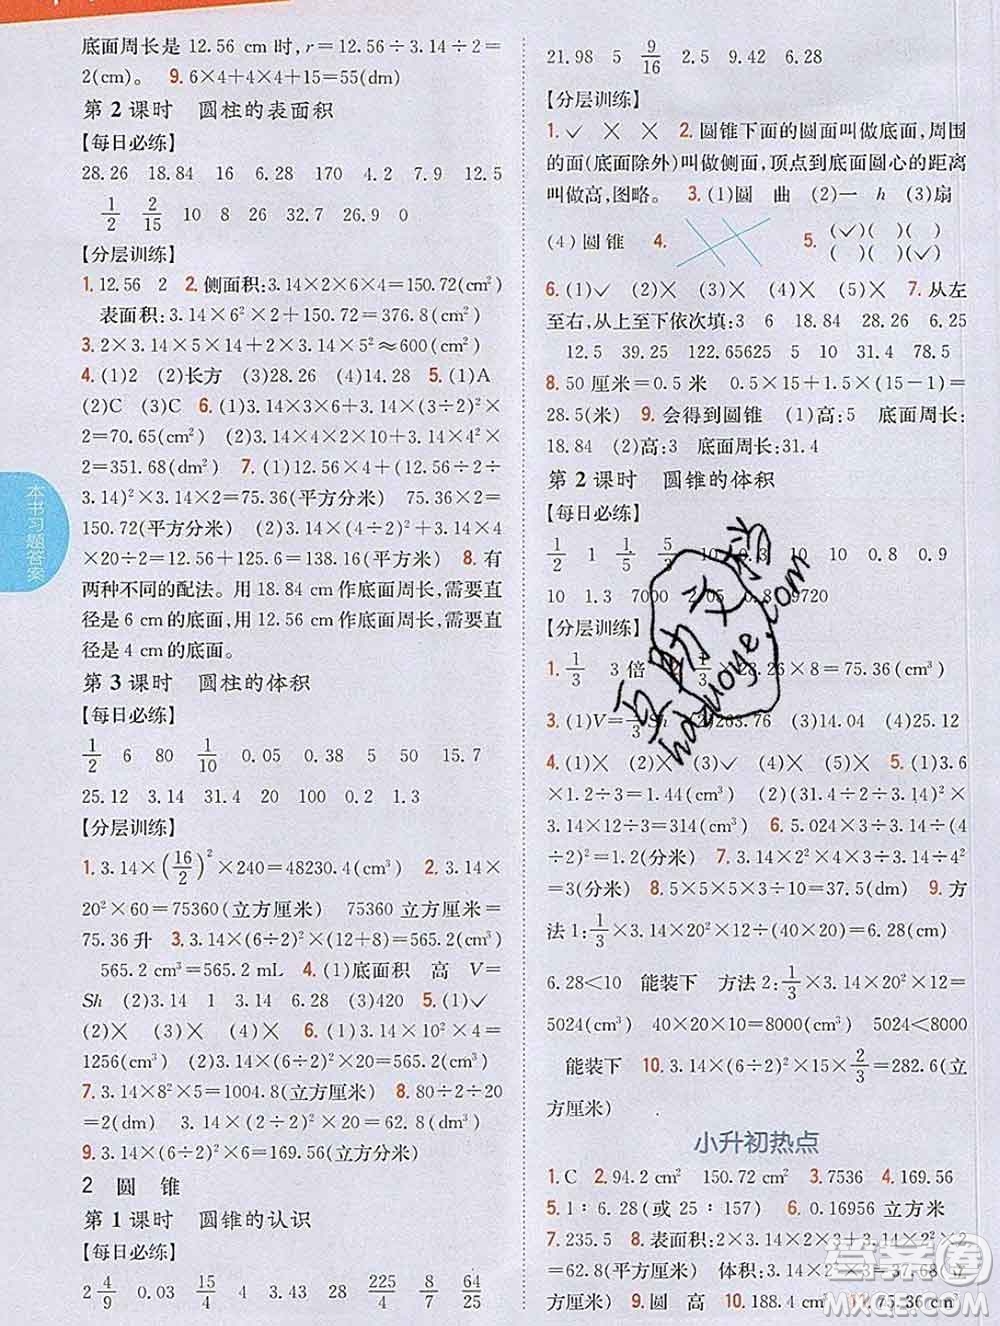 底面周长是 12.56 cm 时,r=12.56÷3.14÷2=
2(cm)。 9.6×4+4×4+15=55(dm)
第 2 课时 圆柱的表面积
【每日必练】
28.26 18.84 16 6.28 170 4.2 7.9 12.5
1/2 2/15 10 8 26 32.7 26.9 0
【分层训练】
1.12.56 2 2.侧面积:3.14×2×6×4=150.72(cm²)
表面积:3.14×6²×2+150.72=376.8(cm²)
3.2×3.14×5×14+3.14×5²≈600(cm²)
4.(1)2 (2)长方 (3)28.26 (4)14.28 5.(1)A
(2)C (3)C 6.(1)3.14×3×6+3.14×(3÷2)²×
2=70.65(cm²) (2)3.14×4×2×10+3.14×4²×
2=351.68(dm²) 7.(1)12.56×4+(12.56÷2÷
3.14)²×3.14×2=75.36(平方分米) 75.36×2=
150.72(平方分米) (2)3.14×(4÷2)²+3.14×4
×20÷2=12.56+125.6=138.16(平方米) 8.有
两种不同的配法。用 18.84 cm 作底面周长,需要直
径是 6 cm 的底面,用 12.56 cm 作底面周长,需要直
径是 4 cm 的底面。
第 3 课时 圆柱的体积
【每日必练】
1/2 6 80 1/10 0.05 0.38 5 50 15.7
25.12 3.14 31.4 20 100 0.2 1.3
【分层训练】
1.3.14×(16/2)²×240=48230.4(cm³) 2.3.14×
20²×60=75360(立方厘米) 75360 立方厘米=
75.36 升 3.3.14×(6÷2)²×20=565.2(cm³)
565.2 cm³=565.2 mL 4.(1)底面积 高 V=
Sh (2)3.14 1 3.14 6.28 (3)420 5.(1)✓
(2)× (3)× (4)× 6.(1)3.14×10²×4=
1256(cm³) (2)3.14×(6÷2)²×20=565.2(cm³)
7.3.14×8²×5=1004.8(立方厘米) 8.80÷2÷20
=2(dm) 3.14×(2÷2)²×20=62.8(dm³)
9.3.14×(6÷2)²×6=169.56(立方分米)
2 圆 锥
第 1 课时 圆锥的认识
【每日必练】
2 4/9 0.03 15/4 4 3 34 28 225/4 8/9 64/25
21.98 5 9/16 2.5 9.42 6.28
【分层训练】
1.✓ × × 2.圆锥下面的圆面叫做底面,周围
的面(底面除外)叫做侧面,顶点到底面圆心的距离
叫做高,图略。 3.(1)圆 曲 (2)一 h (3)扇
(4)圆锥 4. 5.(✓)( )( )( )
( )( )( )(✓)
6.(1)✓ (2)× (3)× (4)× (5)✓ 7.从左
至右,从上至下依次填:3 6 18.84 28.26 6.25
12.5 39.25 122.65625 5 10 31.4 78.5
8.50 厘米=0.5 米 0.5×15+1.5×(15-1)=
28.5(米) 9.会得到圆锥 (1)高:5 底面周长:
18.84 (2)高:3 底面周长:31.4
第 2 课时 圆锥的体积
【每日必练】
1/2 1 1/5 10 10 0.8 0.9
10 1.3 7000 2.05 0.8
【分层训练】
1.1/3 3 倍 ×8=75.36(cm³)
3.(1)V=1/3Sh (2)263.76 (3)14.04 (4)25.12
4.(1)× (2)× (3)✓ (4)× 5.(1)3.6
×1.2÷3=1.44(立方分米) (2)(31.4÷3.14÷2)²×
3.14×12÷3=314(cm³) 6.5.024×3÷3.14÷(4
÷2)²=1.2(分米) 7.3.14×2²×4×3÷3.14÷4²
=3(分米) 8.50×10×3÷40=37.5(dm) 9.方
法 1:1/3×3.14×20²×12÷(40×20)=6.28(cm)
6.28<10 能装下 方法 2:1/3×3.14×20²×12=
5024(cm³) 40×20×10=8000(cm³) 5024<8000
能装下 10.3.14×(6÷2)²×15×2/3=282.6(立
方厘米)
小升初热点
1.C 2.94.2 150.72 cm² 3.7536 4.169.56
5.1∶6.28(或 25∶157) 6.0.16956 立方米
7.235.5 8.表面积:2×3.14×4+3.14×2²×2
=62.8(平方厘米) 体积:3.14×2²×3=37.68(立
方厘米) 9.圆 高 10.188.4 cm² 11.75.36 cm³
本书习题答案
互助文档
hazuoye.com
答案圈